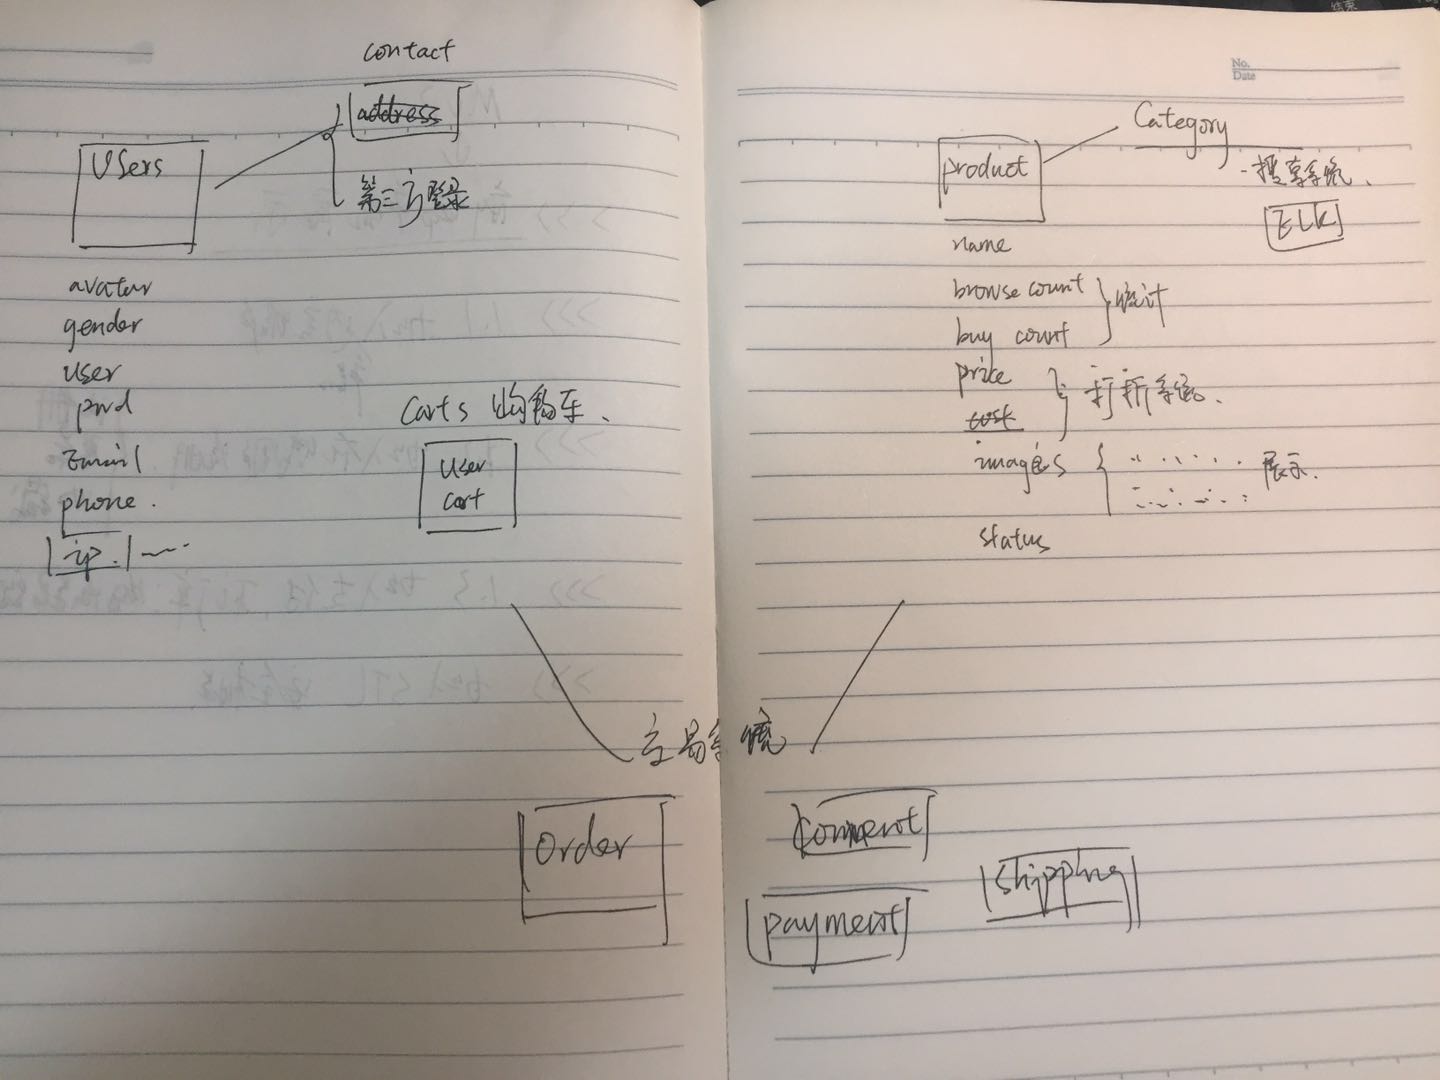 contact
address
Users
第三方登录
avatar
gender
user
pwd
Email
phone.
ip.
Carts 购物车.
user
cart
No.
Date
Category
product
ELK
name
browse count
buy count
统计
price
cost
打折系统.
images
展示.
status
交易系统
order
comment
shipping
payment